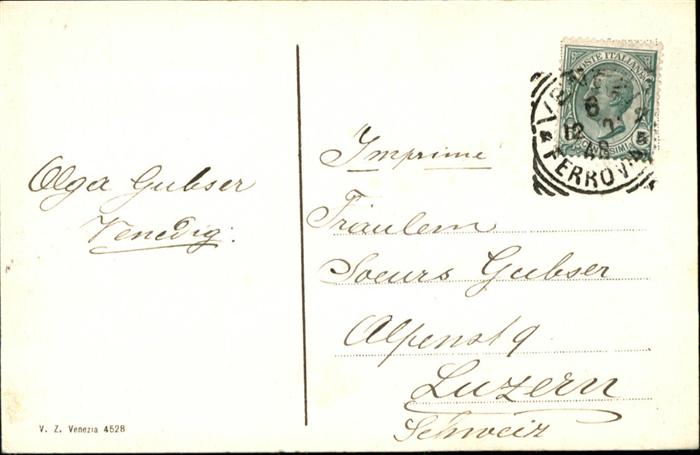 Olga Gubser
Venedig.
V. Z. Venezia 4528
POSTE ITALIANE
5
FERROVIA
Imprimé
Fräulein
Soeurs Gubser
Alpenst 9
Luzern
Schweiz